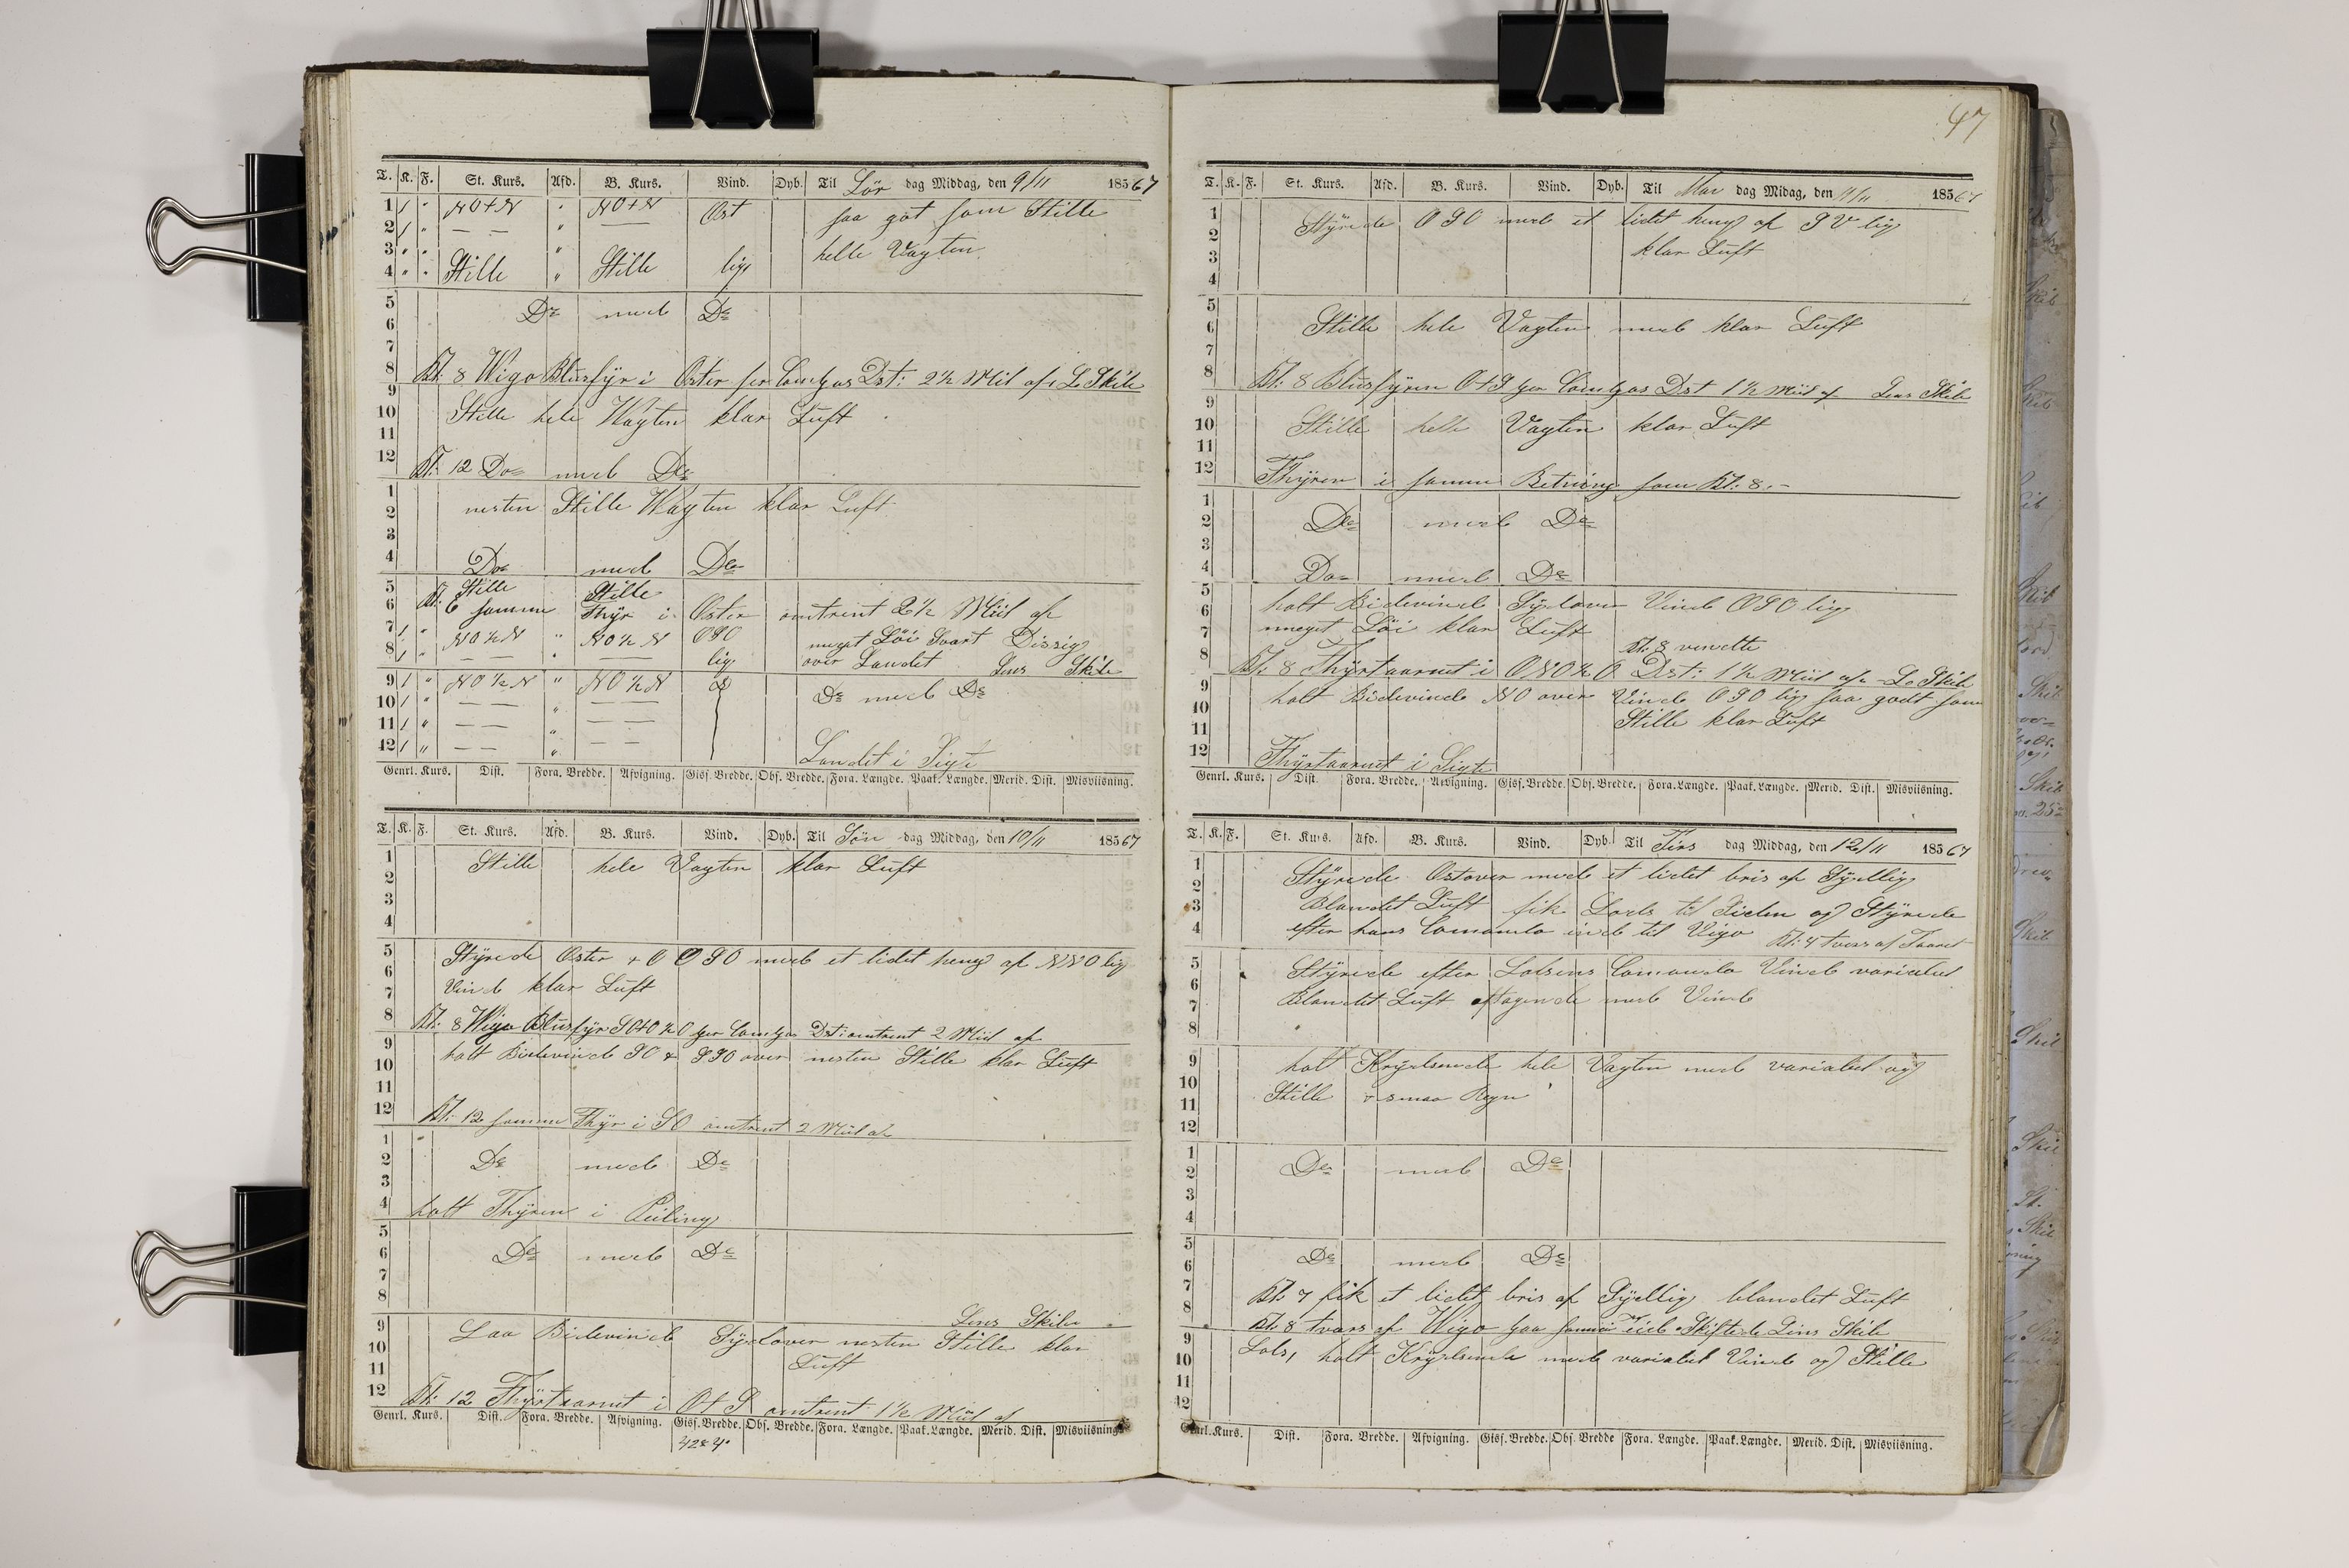 T. K. F. St. Kurs. Afd. B. Kurs. Vind. Dyb. Til Lör dag Middag, den 9/11 18567
1 1 " NO+N " NO+N Ost saa got som Stille
2 1 " — — " —
3 " " " helle Vagten
4 " " Stille " Stille lig
5 De med De
6
7
8 Kl: 8 Wigo Blüsfÿr i Oster per Compas Dst: 2½ Miil af: L. Skibe
9
10 Stille hele Wagten klar Luft
11
12 Kl: 12 Do med De
1
2 nesten Stille Wagten klar Luft
3
4 Do med De
5 Stille Stille
6 Kl: 6 samme Fhÿr i Oster omtrent 2½ Miil af
7 1 " NO½N " NO½N OSO meget Löi Svart Dissig
8 1 " — — " — lig over Landet Lens Skibe
9 1 " NO½N " NO½N De med De
10 1 " — — " — —
11 1 " — — " — —
12 1 " — — " — — Landet i Sigte
Genrl. Kurs. Dist. Fora. Bredde. Afvigning. Gisf. Bredde. Obs. Bredde. Fora. Længde. Paak. Længde. Merid. Dist. Misviisning.
T. K. F. St. Kurs. Afd. B. Kurs. Vind. Dyb. Til Sön dag Middag, den 10/11 18567
1 Stille hele Vagten klar Luft
2
3
4
5 Stÿrede Oster + O OSO med et lidet heng af NNO lig
6
7 Vind klar Luft
8 Kl: 8 Wigo Blüsfÿr SO+O½O per Compas Dst: omtrent 2 Miil af
9
10 holt Bidevind SO & SSO over nesten Stille klar Luft
11
12 Kl: 12 samme Fhÿr i SO omtrent 2 Miil af
1
2 De med De
3
4 holt Fhÿren i Peiling
5
6 De med De
7
8 Lens Skibe
9 Laa Bidevind Sÿdover nesten Stille klar
10 Luft
11
12 Kl: 12 Fhÿrtaarnet i O+S omtrent 1½ Miil af
Genrl. Kurs. Dist. Fora. Bredde. Afvigning. Gisf. Bredde. Obs. Bredde. Fora. Længde. Paak. Længde. Merid. Dist. Misviisning.
47
T. K. F. St. Kurs. Afd. B. Kurs. Vind. Dyb. Til Man dag Midag, den 11/11 18567
1 Stÿrede OSO med et lidet heng af SV lig
2
3 klar Luft
4
5
6 Stille hele Vagten med klar Luft
7
8 Kl: 8 Blüsfÿren O+S per Compas Dst 1½ Miil af Lens Skibe
9
10 Stille helle Vagten klar Luft
11
12 Fhÿren i samme Retning som Kl: 8.-
1
2 De med De
3
4 Do med De
5
6 holt Bidevind Sÿdover Vind OSO lig
7 meget Löi klar Luft Kl: 8 vendte
8 Kl: 8 Fhÿrtaarnet i ONO½O Dst: 1½ Miil af L. Skibe
9 holt Bidevind NO over Vind OSO lig saa godt som
10
11 Stille klar Luft
12 Fhÿrtaarnet i Sigte
Genrl. Kurs. Dist. Fora. Bredde. Afvigning. Gisf. Bredde. Obs. Bredde. Fora. Længde. Paak. Længde. Merid. Dist. Misviisning.
T. K. F. St. Kurs. Afd. B. Kurs. Vind. Dyb. Til Tirs dag Middag, den 12/11 18567
1 Stÿrede Ostover med et lidet bris af Sÿdlig
2
3 Blandet Luft fik Lods til Siden og Stÿrede
4 efter hans Comando ind til Vigo Kl: 4 tvers af Taaret
5 Stÿrede efter Lodsens Comando Vind variabel
6
7 Blandet Luft aftagende med Vind
8
9 holt Krÿdsende hele Vagten med variabel og
10
11 Stille + smaa Regn
12
1
2 De med De
3
4
5
6 De med De
7 Kl: 7 fik et lidet bris af Sÿdlig blandet Luft
8 Kl: 8 tvers af Wigo paa samme Tid Skiftede Lens Skibe
9
10 Lods, holt Krÿdsende med variabel Vind og Stille
11
12
Kurs. Dist. Fora. Bredde. Afvigning. Gisf. Bredde. Obs. Bredde Fora. Længde. Paak. Længde. Merid. Dist. Misviisning.